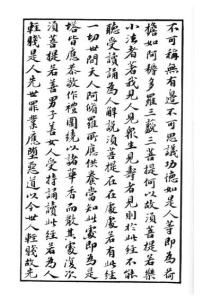 不可稱無有邊不可思議功德如是人等即為荷
擔如阿耨多羅三藐三菩提何以故須菩提若樂
小法者著我見人見眾生見壽者見則於此經不能
聽受讀誦為人解說須菩提在在處處若有此經
一切世間天人阿修羅所應供養當知此處即為是
塔皆應恭敬作禮圍繞以諸華香而散其處復次
須菩提若善男子善女人受持讀誦此經若為人
輕賤是人先世罪業應墮惡道以今世人輕賤故先